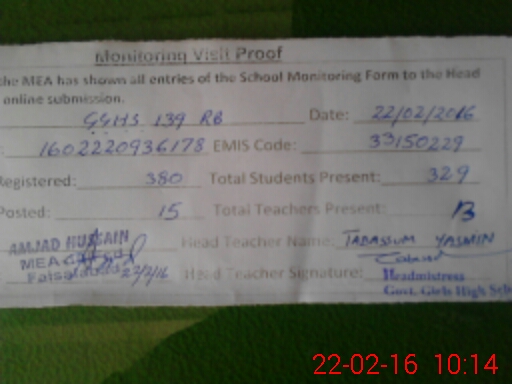 Monitoring Visit Proof
the MEA has shown all entries of the School Monitoring Form to the Head
online submission.
GGHS 139 RB Date: 22/02/2016
: 1602220936178 EMIS Code: 33150229
Registered: 380 Total Students Present: 329
Posted: 15 Total Teachers Present: 13
AMJAD HUSSAIN Head Teacher Name: TABASSUM YASMIN
MEA
Faisalabad 22/2/16 Head Teacher Signature: Headmistress
Govt. Girls High Sch
22-02-16 10:14